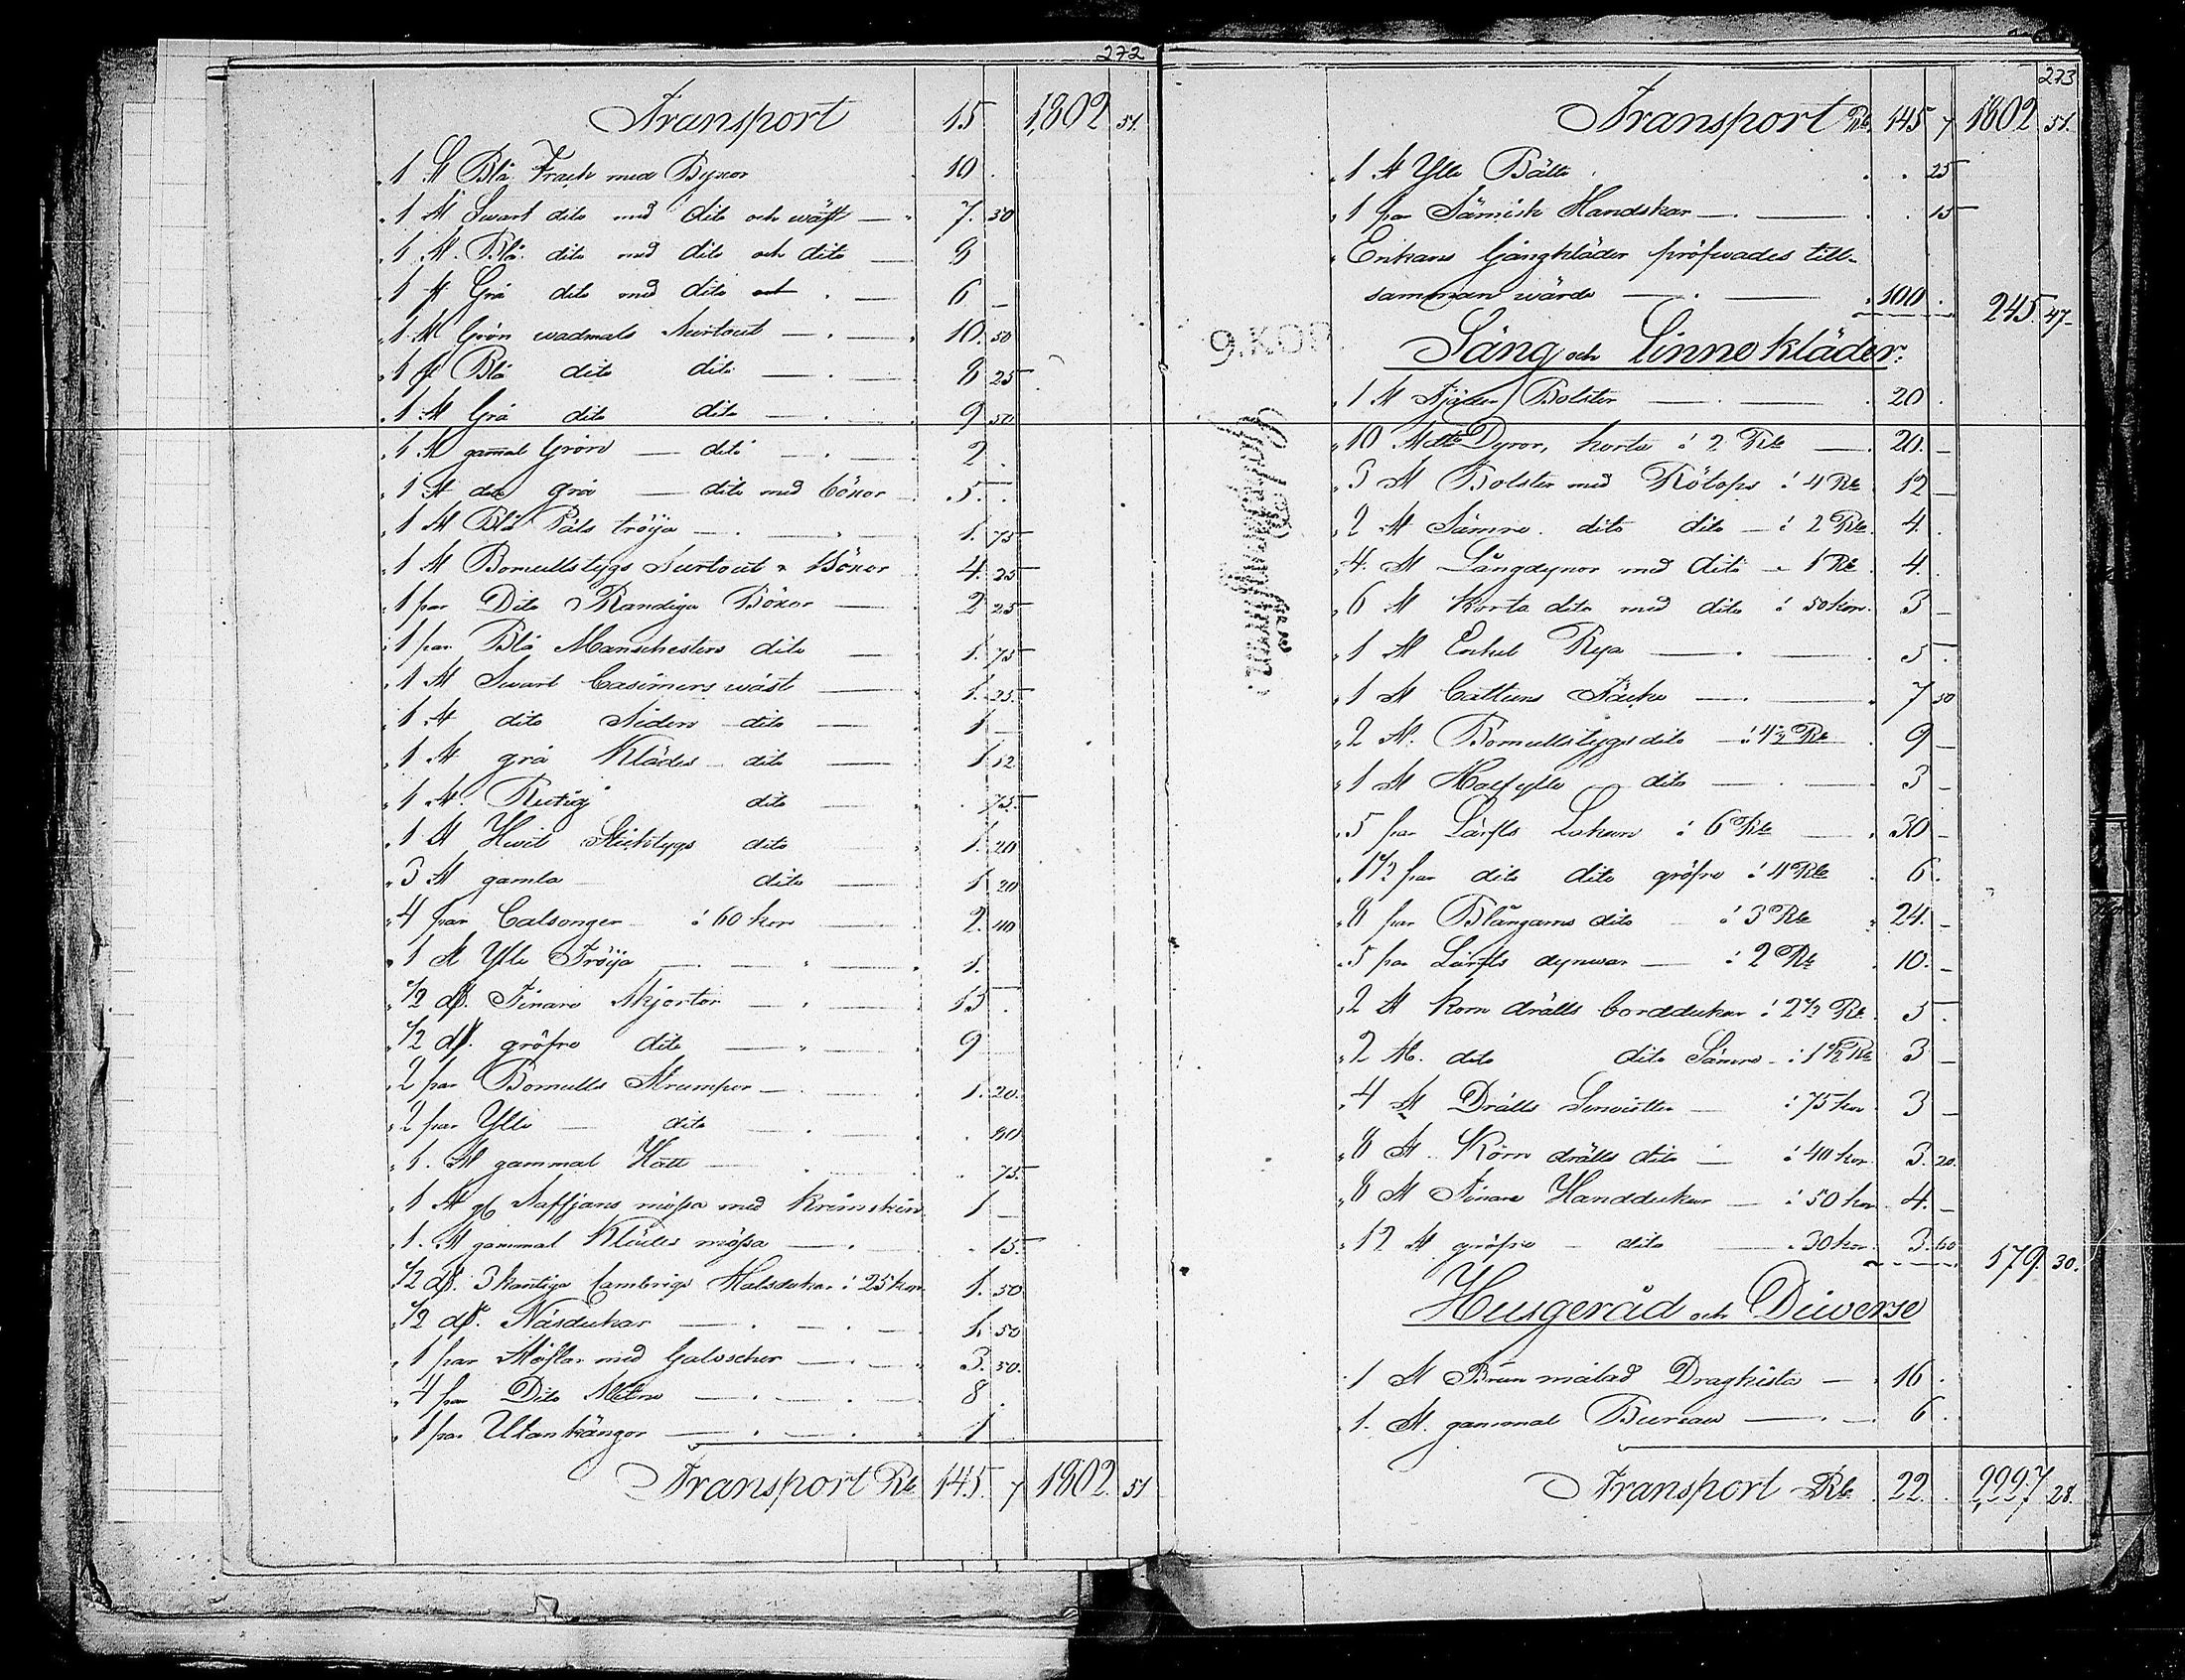 272
Transport 15 1,802 51.
1 St Blå Frack med Byxor 10
1 St Swart dito med dito och wäst 7. 50
1 St. Blå dito med dito och dito 8
1 St Grå dito med dito 6 –
1 St Grön wadmals Surtout 10. 50
1 St Blå dito dito 8 25
1 St Grå dito dito 9 50
1 St gamal Grön dito 2
1 St dito grå dito med böxor 5.
1 St Blå Päls tröija 1. 75
1 St Bomullstygs Surtout & Böxor 4. 25
1 par Dito Randiga Böxor 2 25
1 par Blå Manschesters dito 1. 75
1 St Swart Casimirs wäst 1. 25.
1 St dito Siden dito 1 –
1 St grå Klädes dito 1 12
1 St. Rutig dito 75.
1 St Hwit Sticktygs dito 1. 20
3 St gamla dito 1 20
4 par Calsonger 60 kop 2. 40
1 St Ylle Tröija 1.
1/2 dß. Finare Skjortor 15
1/2 dß. gröfre dito 9
2 par Bomulls Strumpor 1. 20.
2 par Ylle dito 80
1. St gammal Hatt 75.
1 St gl Saffjans mössa med Krimskin 1 –
1. St gammal Klädes mössa 15.
1/2 dß. 3 kantiga Cambrigs Halsdukar 25 kop. 1. 50
1/2 dß. Näsdukar 1. 50
1 par Stöflar med Galoscher 3. 50.
4 par Dito 8
1 par Utankängor 1
Transport Rb 145. 7 1802. 51
273
Transport Rb. 145 7 1802 51.
1 St Ylle Bälte 25
1 par Sämisk Handskar 15
Enkans Gångkläder pröfwades till-
samman wärde 100 245. 47
Säng och Linne kläder.
1 St Fjäder Bolster 20
10 Dynor, korta á 2 Rb 20. –
3 St Bolster med Rölops á 4 Rb 12 –
2 St Sämre dito dito á 2 Rb 4.
4. St Långdynor med dito 1 Rb 4.
6 St Korta dito med dito á 50 kop. 3 –
1 St Enkel Rya 5.
1 St Cattuns Täcke 7 50
2 St. Bomullstygs dito á 4 1/2 Rb 9 –
1 St Halfylle dito 3 –
5 par Lärfts Lakan á 6 Rb 30 –
1 1/2 par dito dito gröfre á 4 Rb 6.
8 par Blångarns dito á 3 Rb 24. –
5 par Lärfts dynwar á 2 Rb 10. –
2 St Korn drälls borddukar á 2 1/2 Rb. 5.
2 St. dito dito Sämre á 1 1/2 Rb 3 –
4 St Drälls Serwietter á 75 kop 3 –
8 St. Korn drälls dito á 40 kop. 3. 20.
8 St Finare Handdukar á 50 kop 4. –
12 St gröfre dito 30 kop. 3. 60 179. 30.
Husgeråd och Diwerse
1 St Brun målad Dragkista 16
1. St. gammal Bureau 6.
Transport Rb. 22 2227 28.
9. KOP